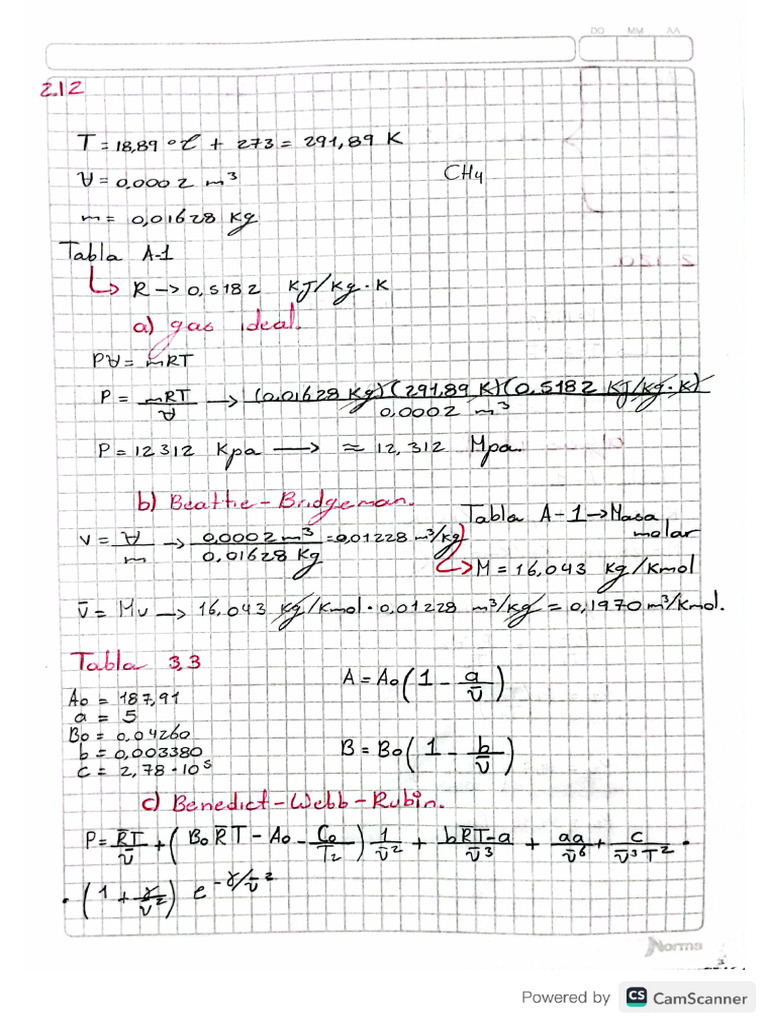 DD MM AA
2.12
T = 18,89 °C + 273 = 291,89 K
V = 0,0002 m³ CH4
m = 0,01628 Kg
Tabla A-1
↳ R -> 0,5182 KJ/Kg·K
a) gas ideal.
PV = mRT
P = mRT/V -> (0,01628 Kg)(291,89 K)(0,5182 KJ/Kg·K)/0,0002 m³
P = 12312 Kpa -> ≈ 12,312 Mpa.
b) Beattie-Bridgeman.
Tabla A-1 -> Masa molar
v = V/m -> 0,0002 m³/0,01628 Kg = 0,01228 m³/kg
↳ M = 16,043 Kg/Kmol
v̄ = Mv -> 16,043 Kg/Kmol · 0,01228 m³/Kg = 0,1970 m³/Kmol.
Tabla 3,3
A = Ao(1 - a/v̄)
Ao = 187,91
a = 5
Bo = 0,04260
b = 0,003380
c = 2,78·10⁵
B = Bo(1 - b/v̄)
c) Benedict-Webb-Rubin.
P = R̄T/v̄ + (Bo R̄T - Ao - Co/T2) 1/v̄² + bR̄T-a/v̄³ + aa/v̄⁶ + c/v̄³T² ·
· (1 + γ/v̄²) e^-γ/v̄²
Norma
Powered by CS CamScanner